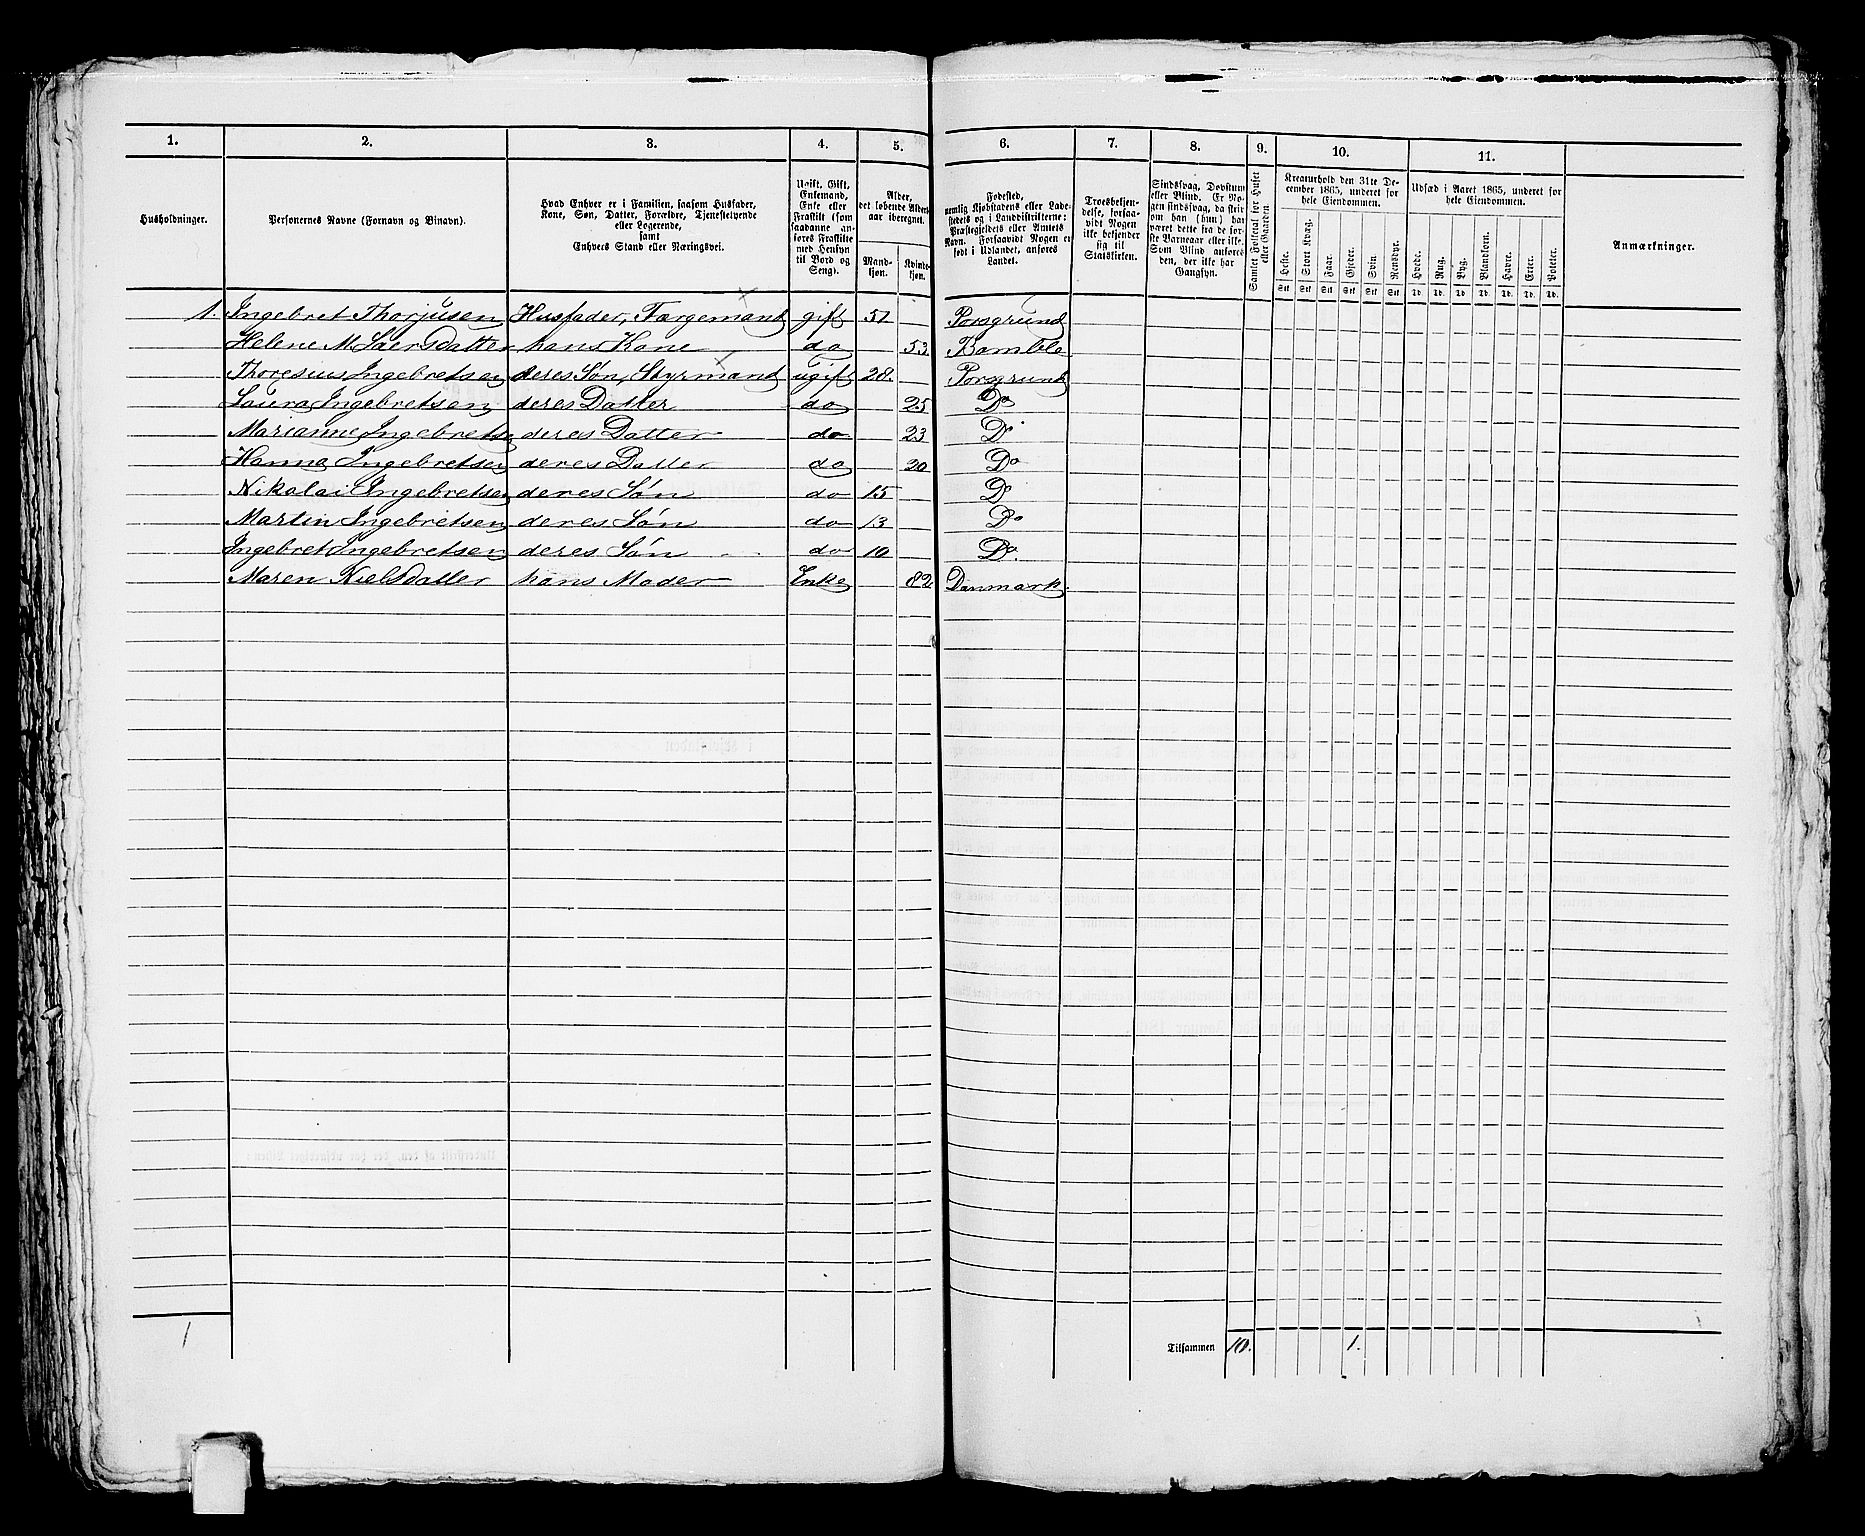 1. 2. 3. 4. 5. 6. 7. 8. 9. 10. 11.
Husholdninger.
Personernes Navne (Fornavn og Binavn).
Hvad Enhver er i Familien, saasom Husfader,
Kone, Søn, Datter, Forældre, Tjenestetyende
eller Logerende,
samt
Enhvers Stand eller Næringsvei.
Ugift, Gift,
Enkemand,
Enke eller
Fraskilt (som
saadanne an-
føres Fraskilte
med Hensyn
til Bord og
Seng).
Alder,
det løbende Alders-
aar iberegnet.
Mand-
kjøn.
Kvinde-
kjøn.
Fødested,
nemlig Kjøbstadens eller Lade-
stedets og i Landdistrikterne:
Præstegjeldets eller Amtets
Navn. Forsaavidt Nogen er
født i Udlandet, anføres
Landet.
Troesbekjen-
delse, forsaa-
vidt Nogen
ikke bekjender
sig til
Statskirken.
Sindssvag, Døvstum
eller Blind. Er No-
gen sindssvag, da skrives
om han (hun) har
været dette fra de før-
ste Barneaar eller ikke.
Som Blind anføres
den, der ikke har
Gangsyn.
Samlet Folketal for Huset
eller Gaarden.
Kreaturhold den 31te De-
cember 1865, underet for
hele Eiendommen.
Heste. Stort Kvæg. Faar. Gjeder. Svin. Rensdyr.
Stk Stk Stk Stk Stk Stk
Udsæd i Aaret 1865, underet for
hele Eiendommen.
Hvede. Rug. Byg. Blandkorn. Havre. Erter. Poteter.
Td. Td. Td. Td. Td. Td. Td.
Anmærkninger.
1. Ingebret Thorjusen Husfader, Færgemand gift 51 Porsgrund
Helene M. Saersdatter hans Kone do 53 Bamble
Thoresius Ingebretsen deres Søn, Styrmand ugift 28. Porsgrund
Laura Ingebretsen deres Datter do 25 Do
Marianne Ingebretse deres Datter do 23 Do
Hanna Ingebretsen deres Datter do 20 Do
Nikolai Ingebretsen deres Søn do 15 Do
Martin Ingebretsen deres Søn do 13 Do
Ingebret Ingebretsen deres Søn do 10 Do.
Maren Nielsdatter hans Moder Enke 82 Danmark.
1 Tilsammen 10. 1.